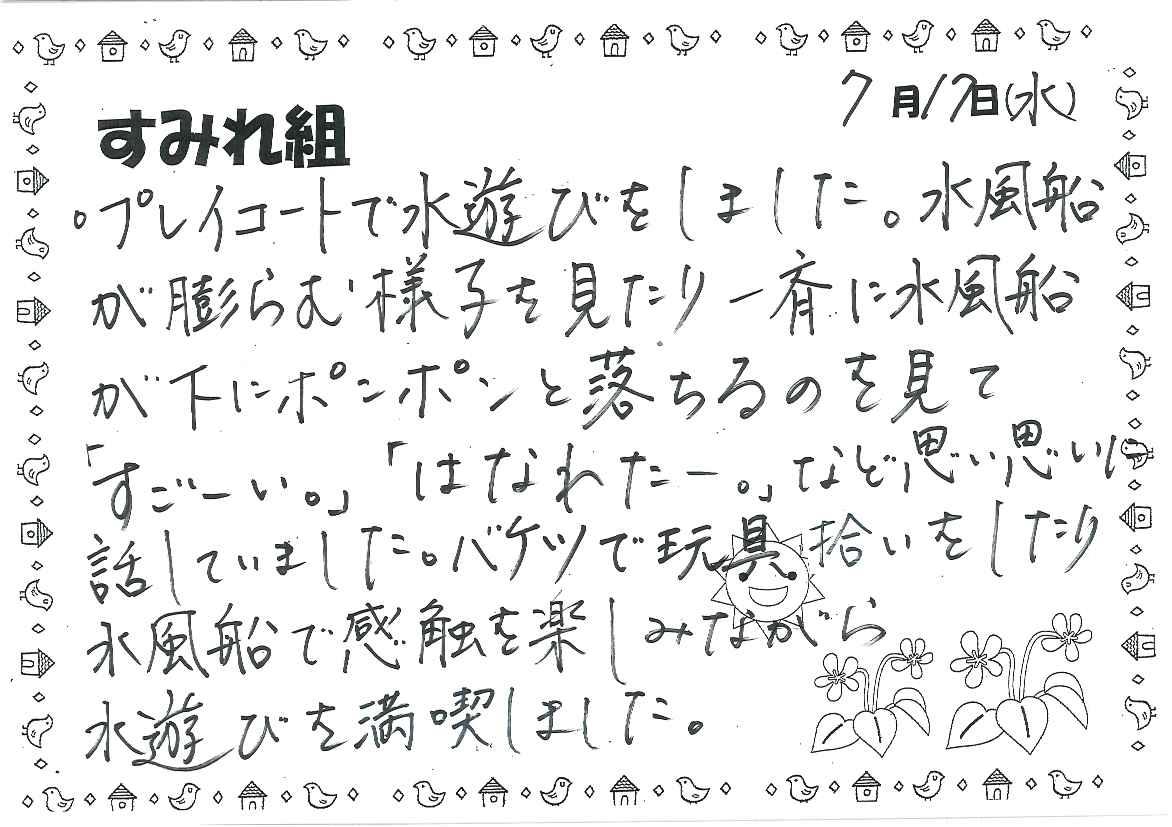 7月17日(水)
すみれ組
。プレイコートで水遊びをしました。水風船
が膨らむ様子を見たり一斉に水風船
が下にポンポンと落ちるのを見て
「すごーい。」「はなわたー。」など思い思いに
話していました。バケツで玩具拾いをしたり
水風船で感触を楽しみながら
水遊びを満喫しました。